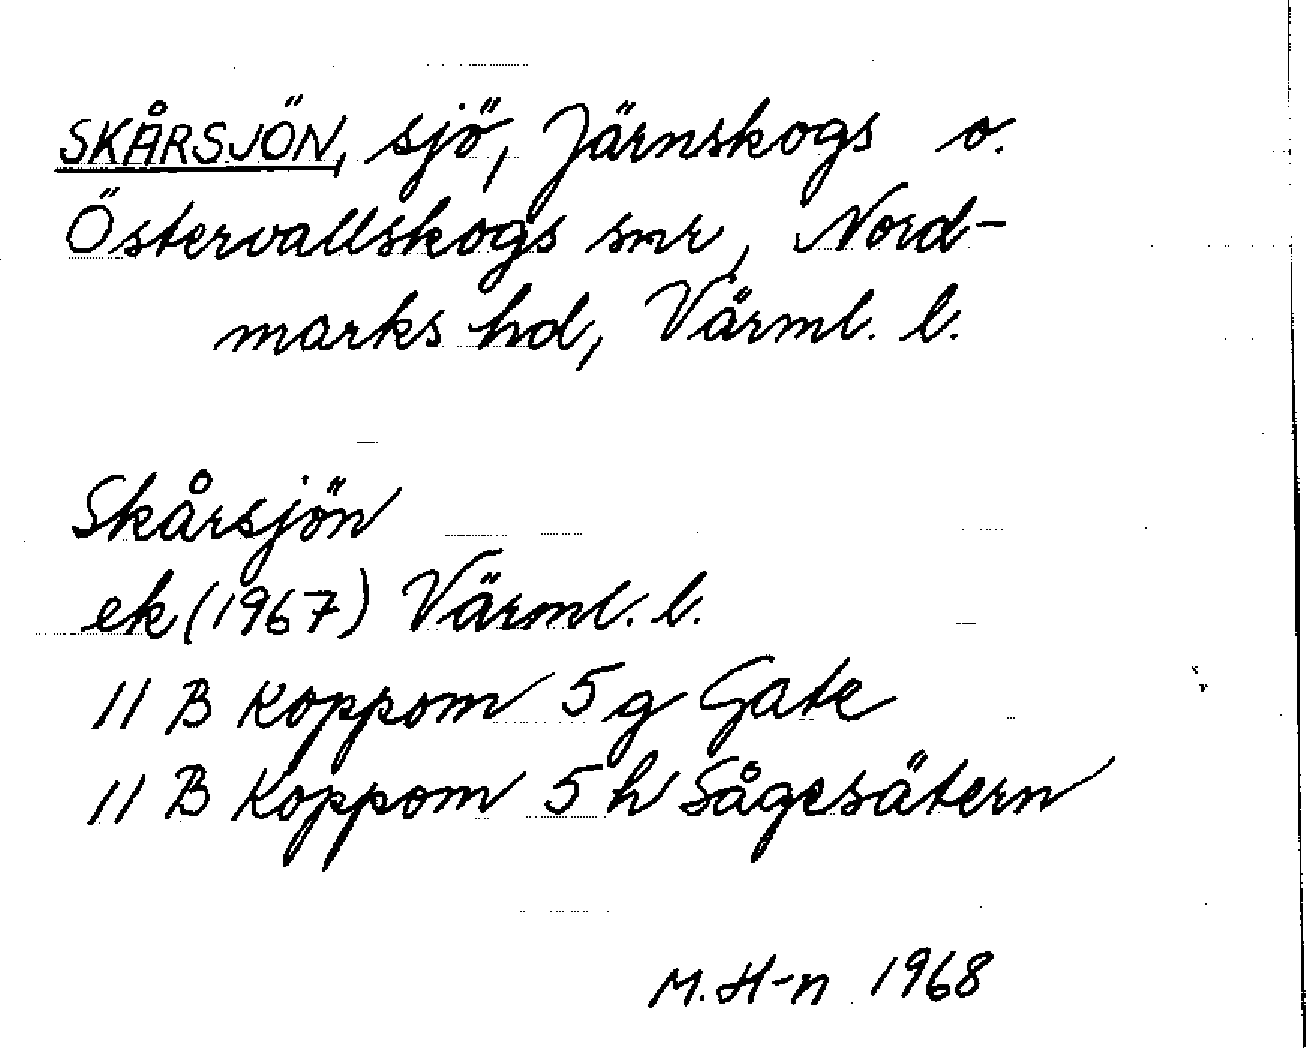 SKÅRSJÖN, sjö, Järnskogs o.
Östervallskogs snr, Nord-
marks hd, Värml. l.
Skårsjön
ek (1967) Värml. l.
11 B Koppom 5 g Gate
11 B Koppom 5 h Sågesätern
M. H-n 1968